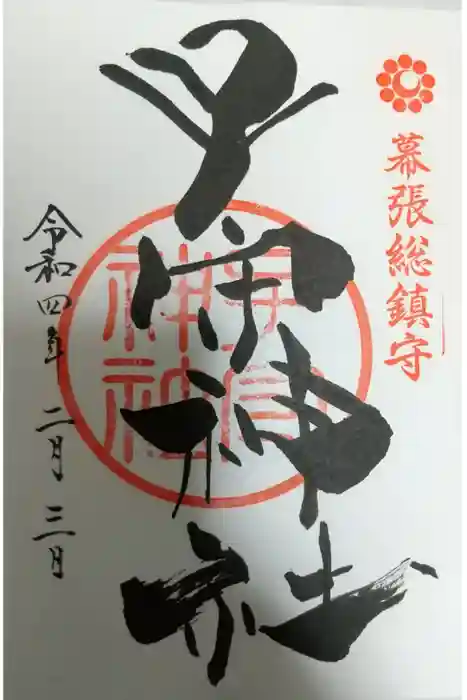 幕張総鎮守
子守神社
子守神社
令和四年 二月 三日